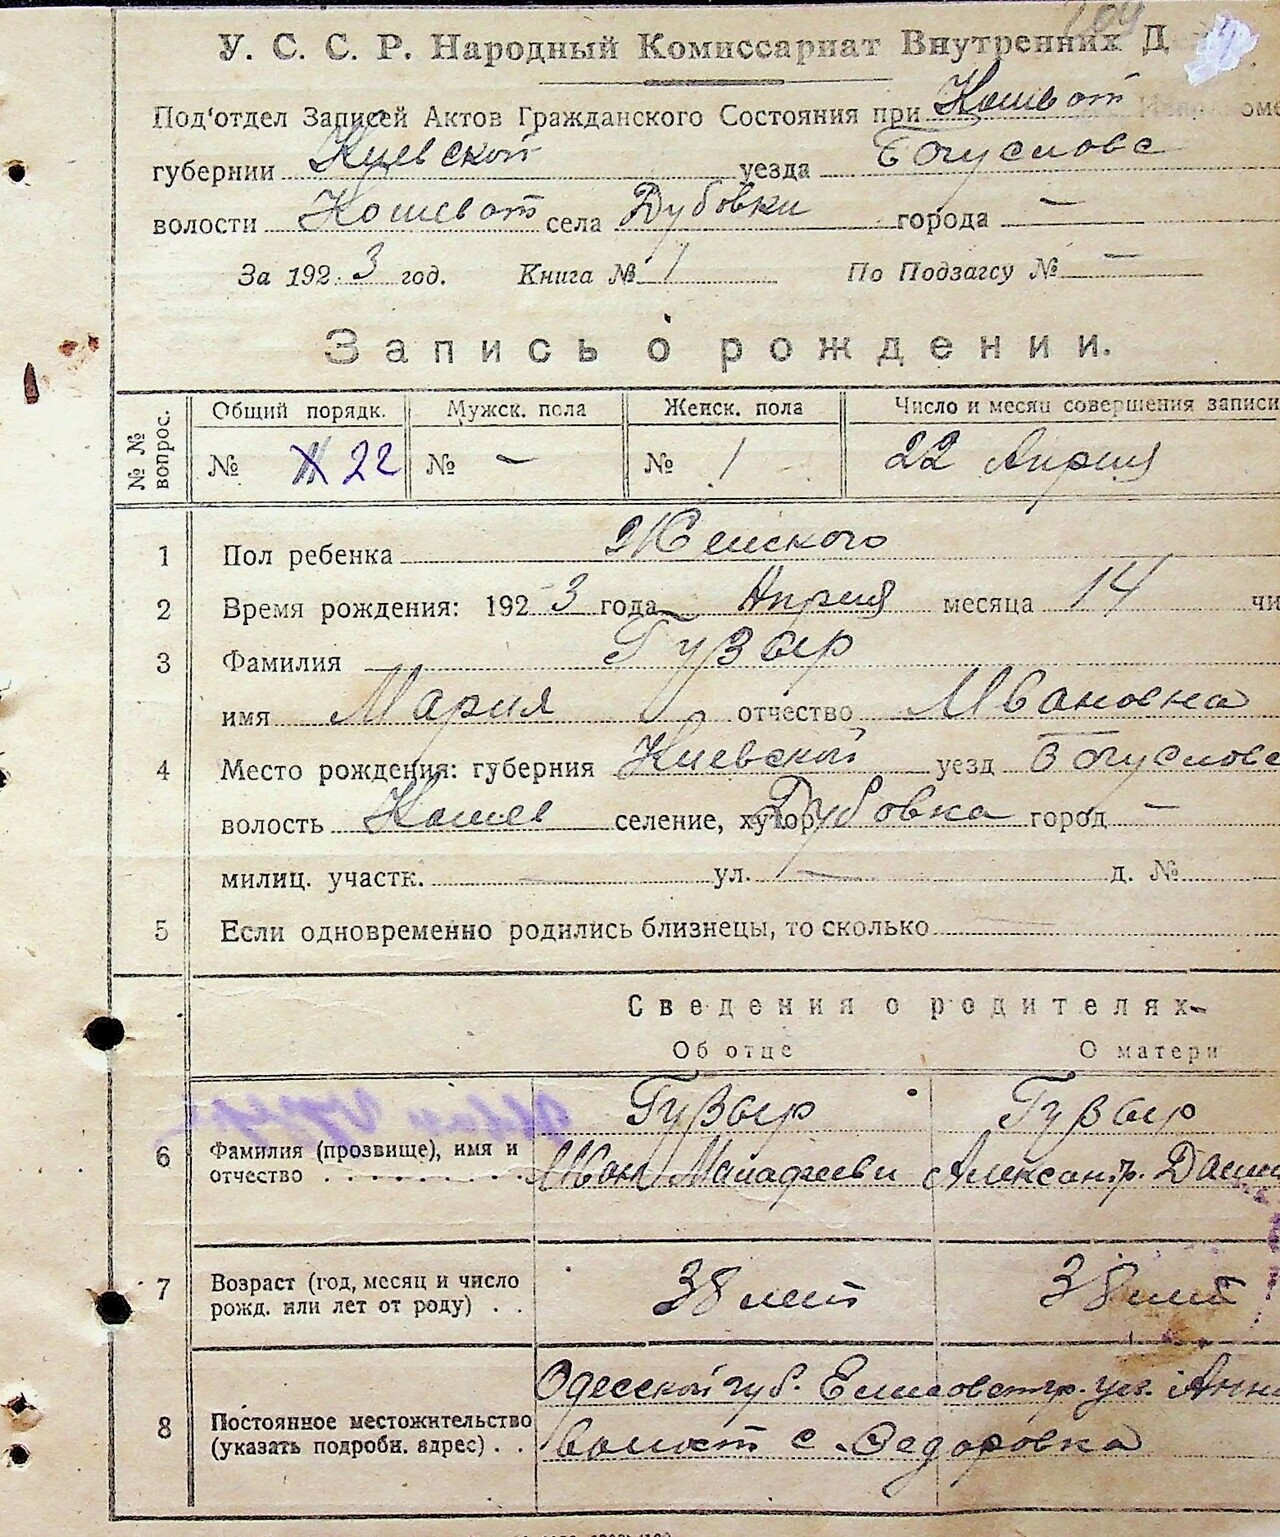 У. С. С. Р. Народный Комиссариат Внутренних Д
Под'отдел Записей Актов Гражданского Состояния при Кошеват
губернии Киевской уезда Богуслове
волости Кошеват села Дубовки города —
За 1923 год. Книга № 1 По Подзагсу № —
Запись о рождении.
№ № вопрос. Общий порядк. Мужск. пола Женск. пола Число и месяц совершения записи
№ 22 № — № 1 22 Апреля
1 Пол ребенка Женского
2 Время рождения: 1923 года Апреля месяца 14 чи
3 Фамилия Гузыр
имя Мария отчество Ивановна
4 Место рождения: губерния Киевской уезд Богуслове
волость Кошев селение, хутор Дубовка город —
милиц. участк. — ул. — д. №
5 Если одновременно родились близнецы, то сколько —
Сведения о родителях
Об отце О матери
Гузыр Гузыр
6 Фамилия (прозвище), имя и
отчество Иван Александр.
7 Возраст (год, месяц и число
рожд. или лет от роду) . . 38 лет 38 лет
Одесской губ. Елисаветгр. уез.
8 Постоянное местожительство
(указать подробн. адрес) . . волост с. Федоровка